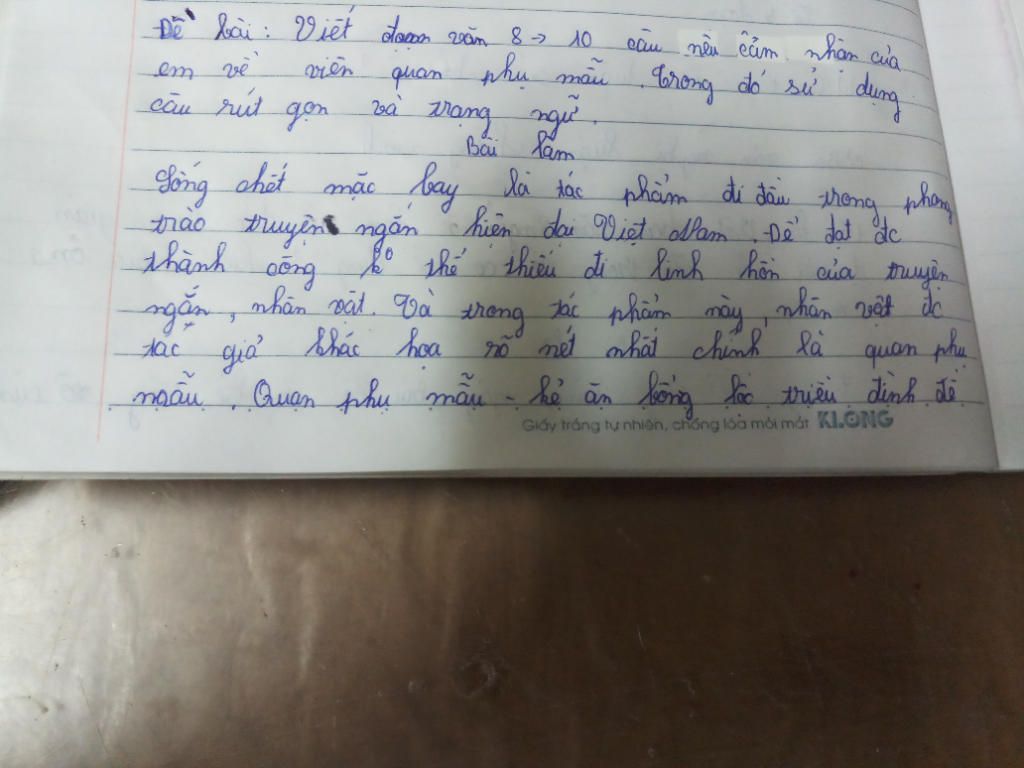 Đề bài: Viết đoạn văn 8 → 10 câu nêu cảm nhận của
em về viên quan phụ mẫu. Trong đó sử dụng
câu rút gọn và trạng ngữ.
Bài làm
Sống chết mặc bay là tác phẩm đi đầu trong phong
trào truyện ngắn hiện đại Việt Nam. Để đạt đc
thành công ko thể thiếu đi linh hồn của truyện
ngắn, nhân vật. Và trong tác phẩm này, nhân vật đc
tác giả khắc họa rõ nét nhất chính là quan phụ
mẫu. Quan phụ mẫu - kẻ ăn bổng lộc triều đình để
Giấy trắng tự nhiên, chống lóa mỏi mắt KLONG